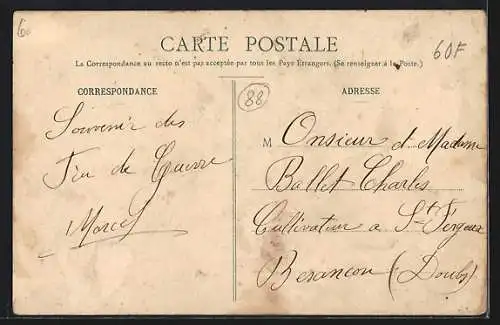 60
CARTE POSTALE
60F
La Correspondance au recto n'est pas acceptée par tous les Pays Étrangers. (Se renseigner à la Poste.)
CORRESPONDANCE
88
ADRESSE
Souvenir des
Feu de Guerre
Marcel
Monsieur et Madame
Ballet Charles
Cultivateur a St Fergeux
Besancon (Doubs)